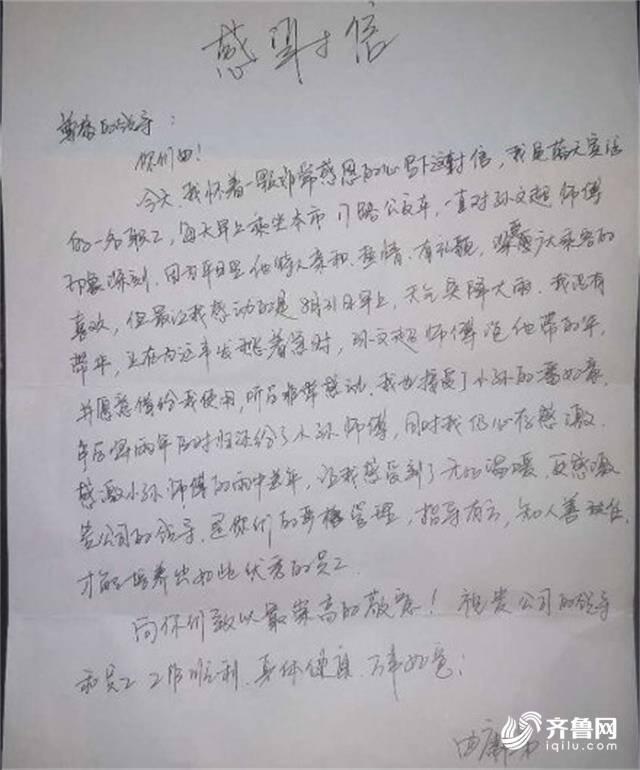 感谢信
尊敬的领导：
你们好！
今天，我怀着一颗非常感恩的心写下这封信，我是蓝天宾馆
的一名职工，每天早上乘坐本市17路公交车，一直对孙文超师傅
印象深刻。因为平日里他待人亲和、热情、有礼貌，深受广大乘客的
喜欢，但最让我感动的是8月21日早上，天气突降大雨，我没有
带伞，正在为这事发愁着急时，孙文超师傅说他带的伞，
并愿意借给我使用，听后非常感动，我也接受了小孙的一番好意，
午后雨停后及时归还给了小孙师傅，同时我仍心存感激。
感激小孙师傅的雨中送伞，让我感受到了无比温暖，更感激
贵公司的领导，是你们的严格管理，指导有方，知人善任，
才能培养出如此优秀的员工。
向你们致以最崇高的敬意！祝贵公司的领导
和员工工作顺利，身体健康，万事如意！
齐鲁网
iqilu.com